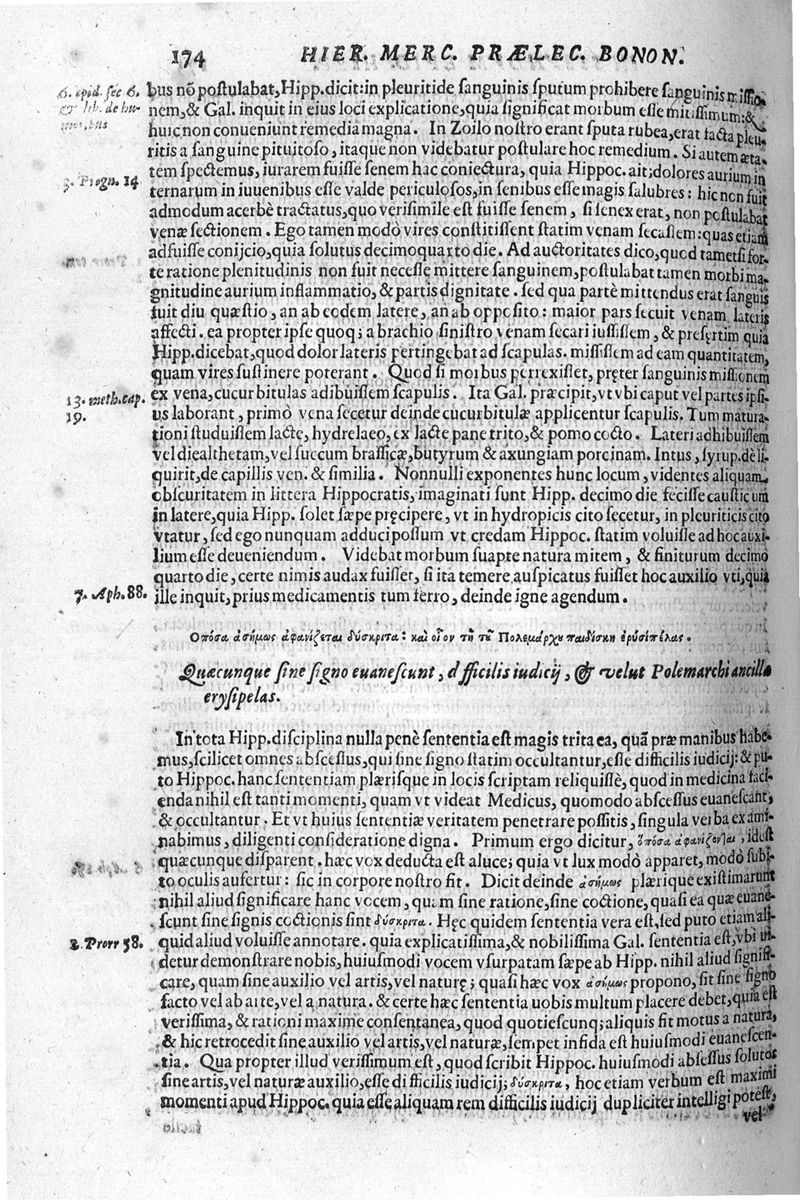 174 HIER. MERC. PRÆLEC. BONON.
6. epid. sec 6.
& lib. de hu-
moribus
bus nō postulabat, Hipp. dicit: in pleuritide sanguinis sputum prohibere sanguinis missio
nem, & Gal. inquit in eius loci explicatione, quia significat morbum esse mitissimum: &
huic non conueniunt remedia magna. In Zoilo nostro erant sputa rubea, erat facta pleu
ritis a sanguine pituitoso, itaque non videbatur postulare hoc remedium. Si autem æta-
tem spectemus, iurarem fuisse senem hac coniectura, quia Hippoc. ait; dolores aurium in
3. Progn. 14
ternarum in iuuenibus esse valde periculosos, in senibus esse magis salubres: hic non fuit
admodum acerbè tractatus, quo verisimile est fuisse senem, si senex erat, non postulabat
venæ sectionem. Ego tamen modò vires constitissent statim venam secassem: quas etiam
adfuisse conijcio, quia solutus decimoquarto die. Ad auctoritates dico, quod tametsi for-
te ratione plenitudinis non fuit necesse mittere sanguinem, postulabat tamen morbi ma-
gnitudine aurium inflammatio, & partis dignitate. sed qua partè mittendus erat sanguis
fuit diu quæstio, an ab eodem latere, an ab opposito: maior pars secuit venam lateris
affecti. ea propter ipse quoq; a brachio sinistro venam secari iussissem, & presertim quia
Hipp. dicebat, quod dolor lateris pertingebat ad scapulas. mississem ad eam quantitatem,
quam vires sustinere poterant. Quod si morbus perrexisset, pręter sanguinis missionem
13. meth. cap.
19.
ex vena, cucurbitulas adibuissem scapulis. Ita Gal. præcipit, vt vbi caput vel partes ipsi-
us laborant, primò vena secetur deinde cucurbitulæ applicentur scapulis. Tum matura-
tioni studuissem lacte, hydrelaeo, ex lacte pane trito, & pomo cocto. Lateri adhibuissem
vel diealthetam, vel succum brassicæ, butyrum & axungiam porcinam. Intus, syrup. dè li-
quirit, de capillis ven. & similia. Nonnulli exponentes hunc locum, videntes aliquam
obscuritatem in littera Hippocratis, imaginati sunt Hipp. decimo die fecisse causticum
in latere, quia Hipp. solet sæpe pręcipere, vt in hydropicis cito secetur, in pleuriticis cito
vtatur, sed ego nunquam adduci possum vt credam Hippoc. statim voluisse ad hoc auxi-
lium esse deueniendum. Videbat morbum suapte natura mitem, & finiturum decimo
quarto die, certe nimis audax fuisset, si ita temere auspicatus fuisset hoc auxilio vti, quia
7. Aph. 88.
ille inquit, prius medicamentis tum ferro, deinde igne agendum.
Οπόσα ἀσήμως ἀφανίζεται δύσκριτα: καὶ οἷον τῇ τȣ̃ Πολεμάρχȣ παιδίσκῃ ἐρυσιπέλας.
Quæcunque sine signo euanescunt, dfficilis iudicij, & velut Polemarchi ancillæ
erysipelas.
In tota Hipp. disciplina nulla penè sententia est magis trita ea, quā præ manibus habe-
mus, scilicet omnes abscessus, qui sine signo statim occultantur, esse difficilis iudicij: & pu-
to Hippoc. hanc sententiam plærisque in locis scriptam reliquissè, quod in medicina faci-
enda nihil est tanti momenti, quam vt videat Medicus, quomodo abscessus euanescant,
& occultantur. Et vt huius sententiæ veritatem penetrare possitis, singula verba exami-
nabimus, diligenti consideratione digna. Primum ergo dicitur, ὁπόσα ἀφανίζονται, idest
quæcunque disparent. hæc vox deducta est a luce; quia vt lux modò apparet, modò subi-
to oculis aufertur: sic in corpore nostro fit. Dicit deinde ἀσήμως plærique existimarunt
nihil aliud significare hanc vocem, quam sine ratione, sine coctione, quasi ea quæ euane-
scunt sine signis coctionis sint δύσκριτα. Hęc quidem sententia vera est, sed puto etiam ali-
2. Prorr 58.
quid aliud voluisse annotare. quia explicatissima, & nobilissima Gal. sententia est, vbi vi-
detur demonstrare nobis, huiusmodi vocem vsurpatam sæpe ab Hipp. nihil aliud signifi-
care, quam sine auxilio vel artis, vel naturę; quasi hæc vox ἀσήμως propono, sit sine signo
facto vel ab arte, vel a natura. & certe hæc sententia uobis multum placere debet, quia est
verissima, & rationi maxime consentanea, quod quotiescunq; aliquis fit motus a natura,
& hic retrocedit sine auxilio vel artis, vel naturæ, semper infida est huiusmodi euanescen-
tia. Qua propter illud verissimum est, quod scribit Hippoc. huiusmodi abscessus solutos
sine artis, vel naturæ auxilio, esse difficilis iudicij; δύσκριτα, hoc etiam verbum est maximi
momenti apud Hippoc. quia esse aliquam rem difficilis iudicij dupliciter intelligi potest,
vel